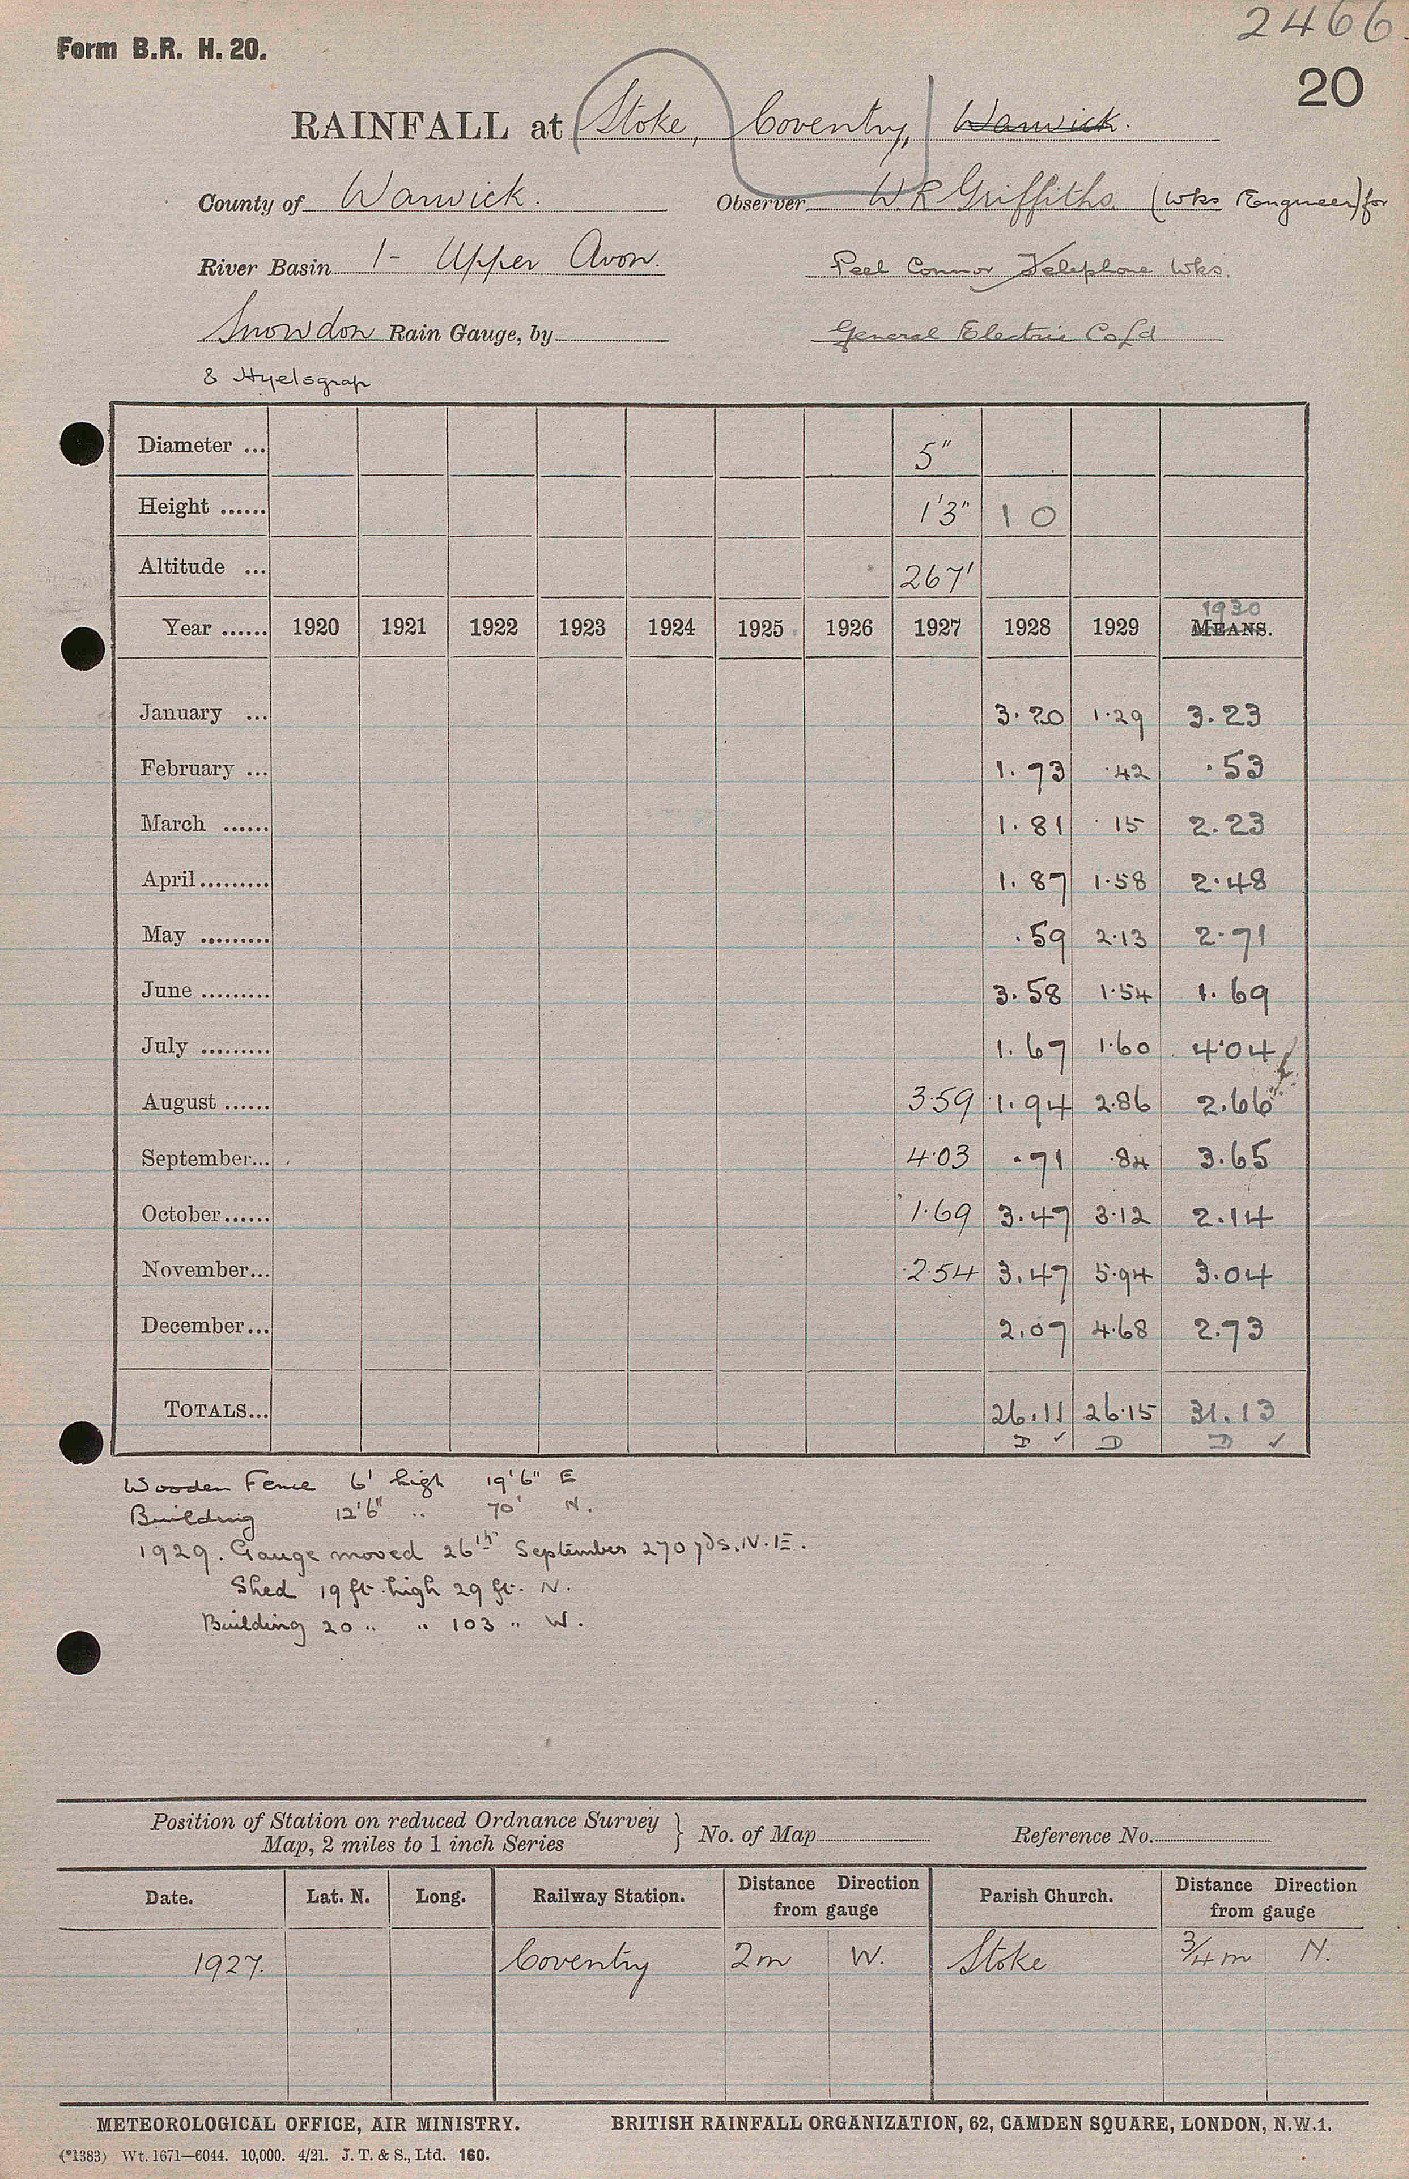 2466.
Form B.R. H. 20.
20
RAINFALL at Stoke, Coventry, Warwick.
County of Warwick. Observer W. R Griffiths (Wks Engineer) for
River Basin 1- Upper Avon. Peel Connor Telephone Wks.
Snowdon Rain Gauge, by General Electric Co Ld
& Hyetograp
Diameter ... 5"
Height ...... 1'3" 1 0
Altitude ... 267'
1930
Year ...... 1920 1921 1922 1923 1924 1925 1926 1927 1928 1929 MEANS.
January ... 3.20 1.29 3.23
February ... 1.73 .42 .53
March ...... 1.81 .15 2.23
April ......... 1.87 1.58 2.48
May ......... .59 2.13 2.71
June ......... 3.58 1.54 1.69
July ......... 1.67 1.60 4.04
August ...... 3.59 1.94 2.86 2.66
September... 4.03 .71 .84 3.65
October ...... 1.69 3.47 3.12 2.14
November... 2.54 3.47 5.94 3.04
December... 2.07 4.68 2.73
TOTALS... 26.11 26.15 31.13
D ✓ D D ✓
Wooden Fence 6' high 19'6" E
Building 12'6" " 70' N.
1929. Gauge moved 26th September 270 yds. N.E.
Shed 19 ft. high 29 ft. N.
Building 20 " " 103 " W.
Position of Station on reduced Ordnance Survey
Map, 2 miles to 1 inch Series } No. of Map Reference No.
Date. Lat. N. Long. Railway Station. Distance Direction from gauge Parish Church. Distance Direction from gauge
1927. Coventry 2m W. Stoke 3/4 m N.
METEOROLOGICAL OFFICE, AIR MINISTRY. BRITISH RAINFALL ORGANIZATION, 62, CAMDEN SQUARE, LONDON, N.W.1.
(*1383) Wt. 1671—6044. 10,000. 4/21. J. T. & S., Ltd. 160.